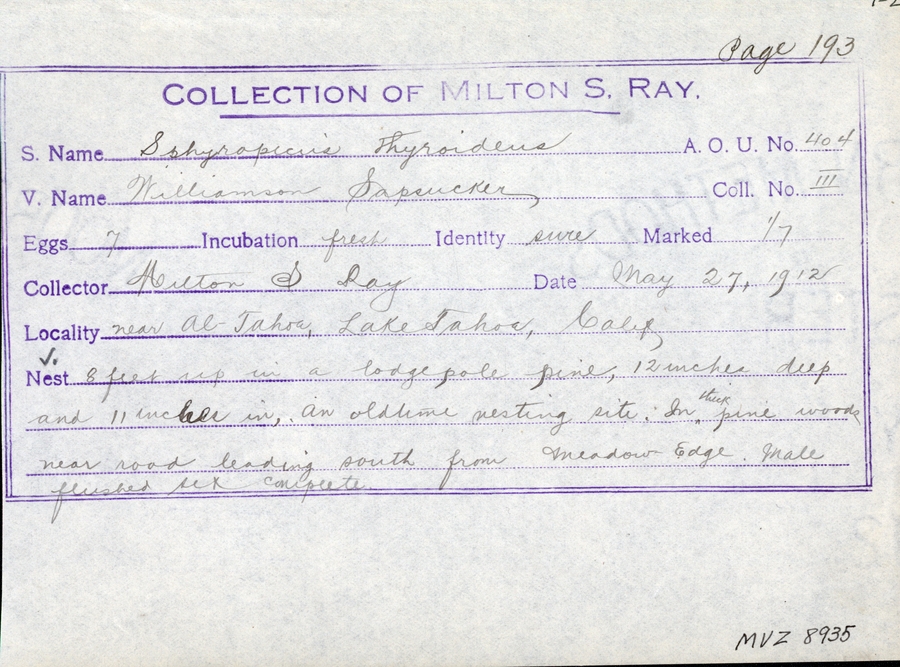 Page 193
COLLECTION OF MILTON S. RAY.
S. Name Sphyrapicus thyroideus A. O. U. No. 404
V. Name Williamson Sapsucker Coll. No. III
Eggs 7 Incubation fresh Identity sure Marked 1/7
Collector Milton S Ray Date May 27, 1912
Locality near Al-Tahoe, Lake Tahoe, Calif,
✓.
Nest 8 feet up in a lodgepole pine, 12 inches deep
and 11 inches in, an oldtime nesting site. In thick pine woods
near road leading south from Meadow Edge. Male
flushed set complete
MVZ 8935